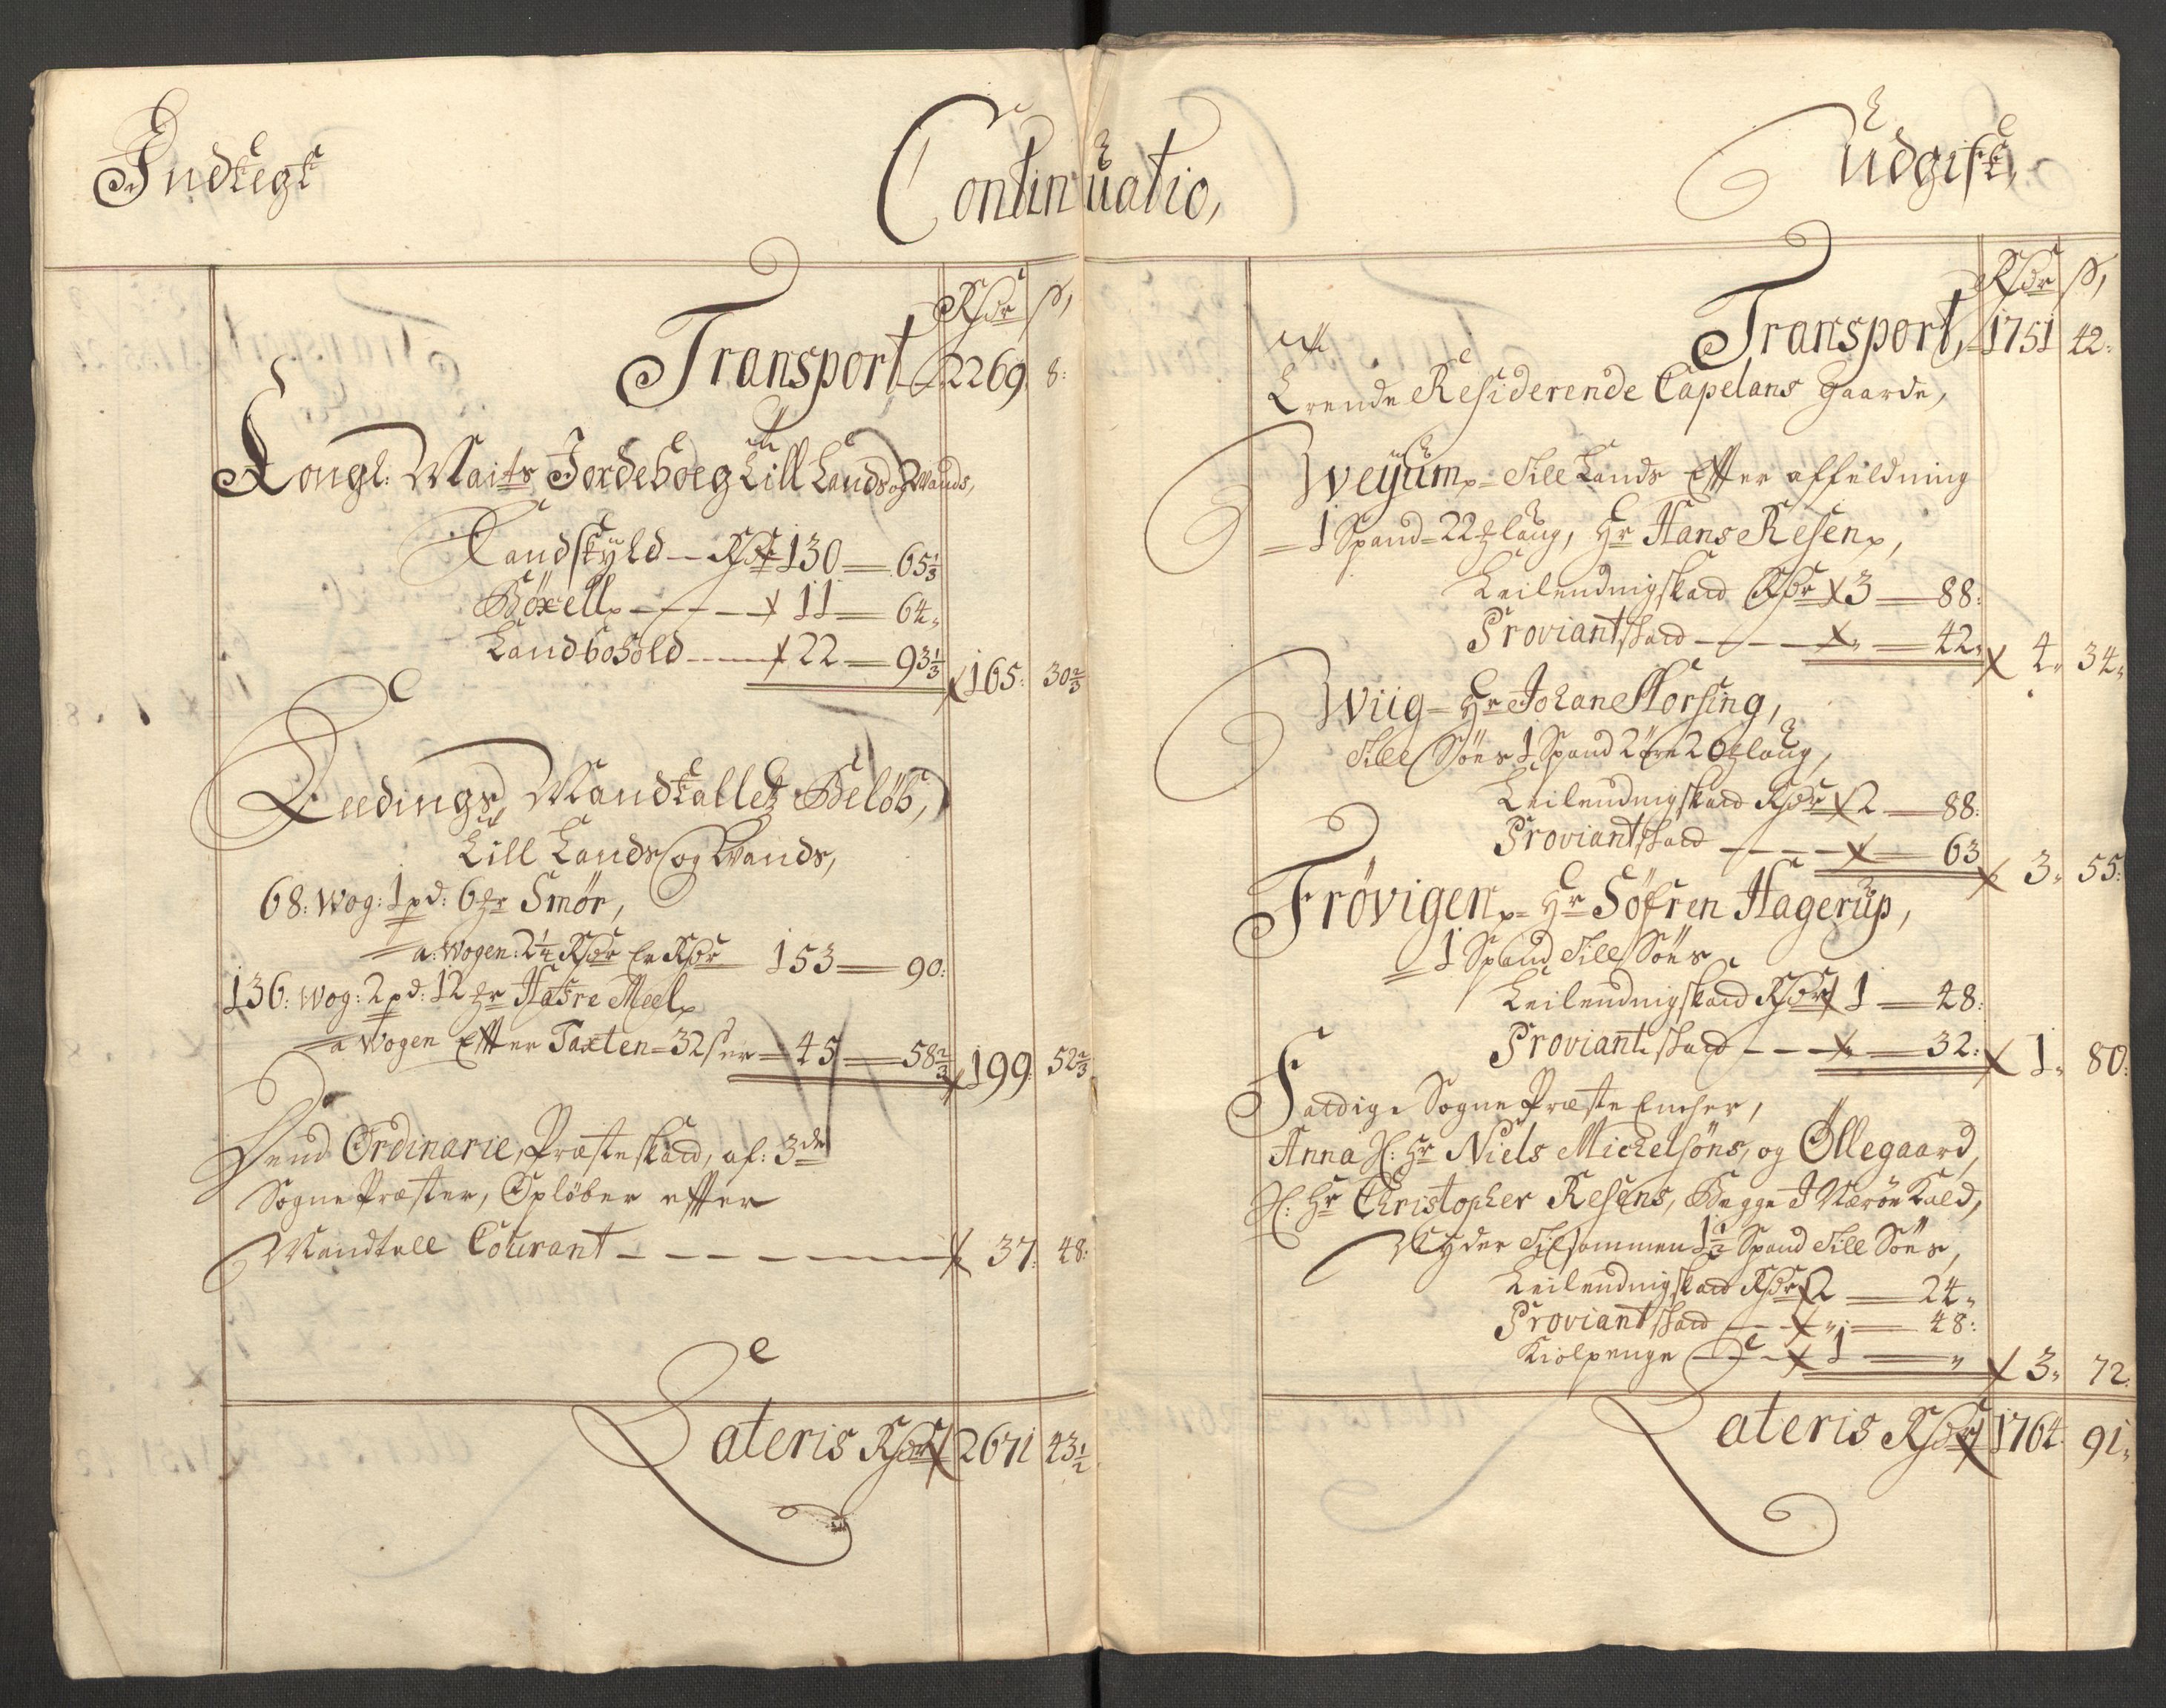 Indtegt
Continuatio,
Udgift,
Rdr ß,
Transport 2269. 8:
Kongl: Maits Jordeboeg till Lands og Wands,
Landskyld — Rdr 130 — 65 1/3
Böxell — 11 — 64
Landbohold — 22 — 93 1/3
165: 30 2/3
Leedings Mandtallet Beløb,
till Lands og Wands,
68: Wog: 1 pd: 6 hr Smör,
a: Wogen: 2 1/4 Rdr er Rdr 153 — 90:
136: Wog: 2 pd: 12 hr Hafre Meel
a Wogen Effter Taxten = 32 ß er = 45 — 58 2/3
199: 52 2/3
Dend Ordinarie Præsteskatt, af: 3de
Sogne Præster, Opløber effter
Mandtall Courant — 37: 48:
Lateris Rdr 2671 43 1/2
Rdr ß,
Transport, 1751 42:
Residerende Capelans Gaarde,
Weyum = Till Lands Effter affældning
1 Spand = 22 laug, Hr Hans Resen,
Leilendnigskatt Rdr 3 — 88:
Proviantskatt — 42
4 34
Wiig = Hr Johan Florsing,
Till Söes 1 Spand 2 öre 20 laug,
Leilendnigskatt Rdr 2 — 88:
Proviantskatt — 63
3 55:
Frövigen = Hr Söfren Hagerup,
1 Spand Till Söes
Leilendnigskatt Rdr 1 — 48:
Proviantskatt — 32:
1 80:
Fattige Sogne Præste Encher,
Anna Sl: Hr Niels Michelsöns, og Øllegaard,
Sl: Hr Christopher Resens, Begge I Nærøe Kald,
Nyder Tilsammen 1 1/2 Spand Till Söes,
Leilendnigskatt Rdr 2 — 24
Proviantskatt — „ — 48:
Kiolpenge — 1 — „
3 72:
Lateris Rdr 1764 91